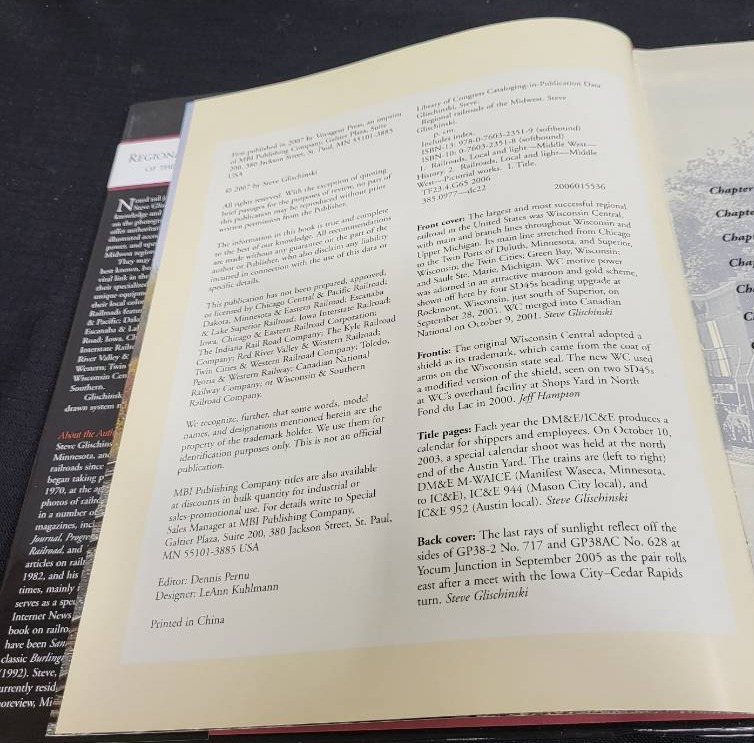 REGION
OF THE
First published in 2007 by Voyageur Press, an imprint
of MBI Publishing Company, Galtier Plaza, Suite
200, 380 Jackson Street, St. Paul, MN 55101-3885
USA
© 2007 by Steve Glischinski
All rights reserved. With the exception of quoting
brief passages for the purposes of review, no part of
this publication may be reproduced without prior
written permission from the Publisher.
The information in this book is true and complete
to the best of our knowledge. All recommendations
are made without any guarantee on the part of the
author or Publisher, who also disclaim any liability
incurred in connection with the use of this data or
specific details.
This publication has not been prepared, approved,
or licensed by Chicago Central & Pacific Railroad;
Dakota, Minnesota & Eastern Railroad; Escanaba
& Lake Superior Railroad; Iowa Interstate Railroad;
Iowa, Chicago & Eastern Railroad Corporation;
The Indiana Rail Road Company; The Kyle Railroad
Company; Red River Valley & Western Railroad;
Twin Cities & Western Railroad Company; Toledo,
Peoria & Western Railway; Canadian National
Railway Company; or Wisconsin & Southern
Railroad Company.
We recognize, further, that some words, model
names, and designations mentioned herein are the
property of the trademark holder. We use them for
identification purposes only. This is not an official
publication.
MBI Publishing Company titles are also available
at discounts in bulk quantity for industrial or
sales-promotional use. For details write to Special
Sales Manager at MBI Publishing Company,
Galtier Plaza, Suite 200, 380 Jackson Street, St. Paul,
MN 55101-3885 USA
Editor: Dennis Pernu
Designer: LeAnn Kuhlmann
Printed in China
Library of Congress Cataloging-in-Publication Data
Glischinski, Steve.
Regional railroads of the Midwest. Steve
Glischinski.
p. cm.
Includes index.
ISBN-13: 978-0-7603-2351-9 (softbound)
ISBN-10: 0-7603-2351-8 (softbound)
1. Railroads, Local and light—Middle West—
History. 2. Railroads, Local and light—Middle
West—Pictorial works. I. Title.
TF23.4.G65 2006
385.0977—dc22 2006015536
Front cover: The largest and most successful regional
railroad in the United States was Wisconsin Central,
with main and branch lines throughout Wisconsin and
Upper Michigan. Its main line stretched from Chicago
to the Twin Ports of Duluth, Minnesota, and Superior,
Wisconsin; the Twin Cities; Green Bay, Wisconsin;
and Sault Ste. Marie, Michigan. WC motive power
was adorned in an attractive maroon and gold scheme,
shown off here by four SD45s heading upgrade at
Rockmont, Wisconsin, just south of Superior, on
September 28, 2001. WC merged into Canadian
National on October 9, 2001. Steve Glischinski
Frontis: The original Wisconsin Central adopted a
shield as its trademark, which came from the coat of
arms on the Wisconsin state seal. The new WC used
a modified version of the shield, seen on two SD45s
at WC's overhaul facility at Shops Yard in North
Fond du Lac in 2000. Jeff Hampton
Title pages: Each year the DM&E/IC&E produces a
calendar for shippers and employees. On October 10,
2003, a special calendar shoot was held at the north
end of the Austin Yard. The trains are (left to right)
DM&E M-WAICE (Manifest Waseca, Minnesota,
to IC&E), IC&E 944 (Mason City local), and
IC&E 952 (Austin local). Steve Glischinski
Back cover: The last rays of sunlight reflect off the
sides of GP38-2 No. 717 and GP38AC No. 628 at
Yocum Junction in September 2005 as the pair rolls
east after a meet with the Iowa City–Cedar Rapids
turn. Steve Glischinski
About the Auth
Steve Glischins
Minnesota, and
railroads since
began taking p
1970, at the ag
photos of railro
in a number o
magazines, incl
Journal, Progre
Railroad, and
articles on rail
1982, and his
times, mainly
serves as a spec
Internet News
book on railro
have been San
classic Burling
(1992). Steve,
urrently resid
oreview, Mi
Chapter
Chapte
Chap
Cha
Ch
C